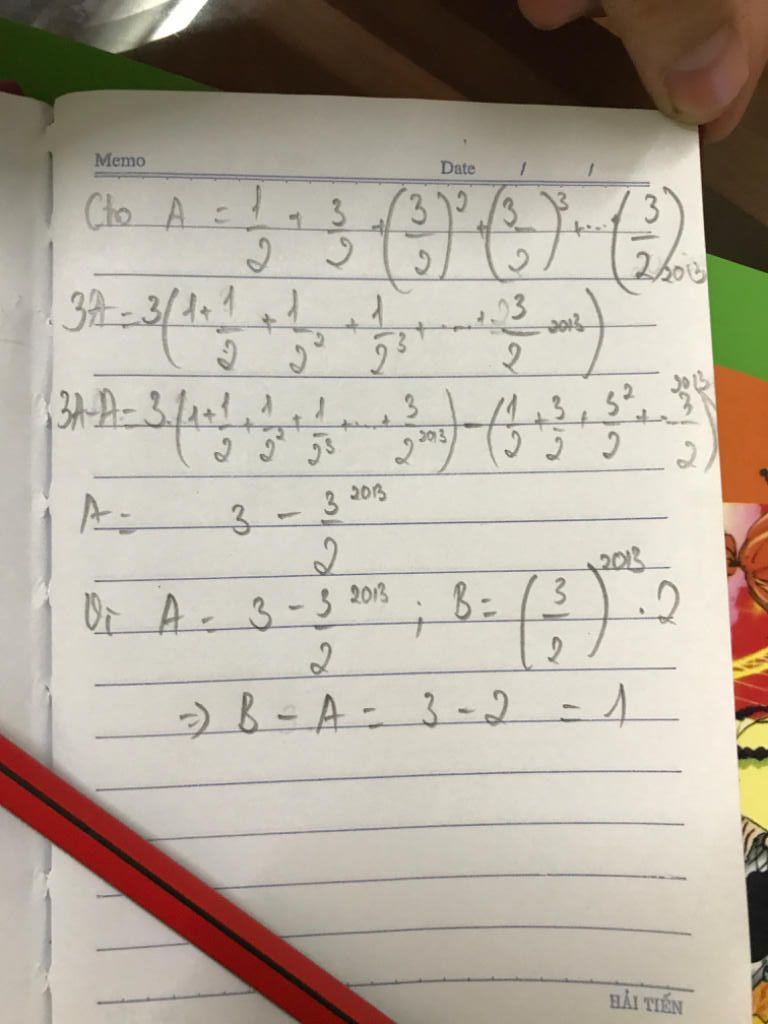 Memo Date / /
Cto A = 1/2 + 3/2 + (3/2)^2 + (3/2)^3 + ... (3/2)2013
3A = 3(1+1/2 + 1/2^2 + 1/2^3 + ... + 3/2 2013)
3A-A = 3.(1+1/2+1/2^2+1/2^3+...+3/2^2013) - (1/2+3/2+3^2/2+...3^2013/2)
A = 3 - 3^2013/2
Vì A = 3 - 3^2013/2 ; B = (3/2)^2013 . 2
=> B - A = 3 - 2 = 1
HẢI TIẾN